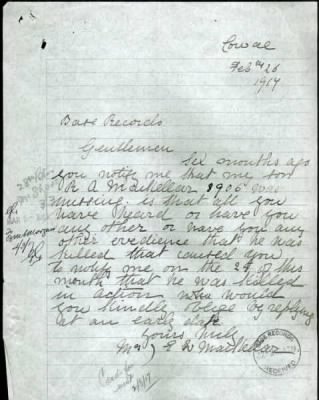 Lowae
Feb 26
1917
Base Records
Gentlemen
Six months ago
you notify me that me son
R A Mackellar 3906 was
missing. is that all you
have heard or have you
any other or have you any
other evedience that he was
killed that caused you
to notify me on the 24 of this
month that he was killed
in action now would
you kindly oblige by replying
at an early date
Yours truly
E W Mackellar
BASE RECORDS
RECEIVED